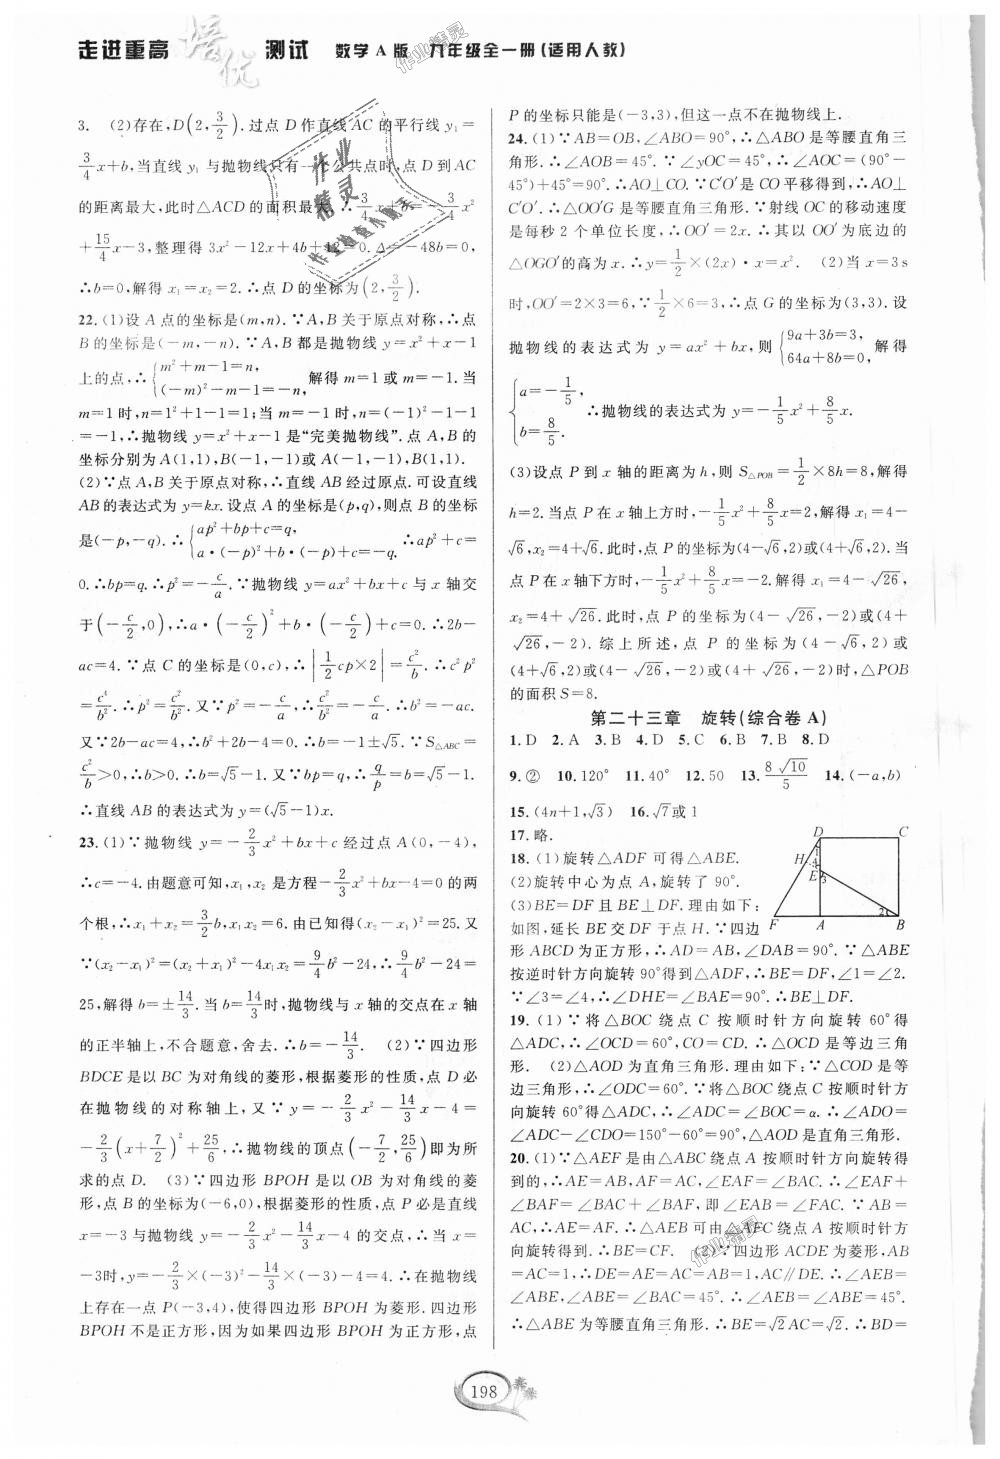 走进重高 培优 测试 数学A版 九年级全一册(适用人教)
3. (2)存在,D(2,3/2).过点D作直线AC的平行线y₁=
3/4x+b,当直线y₁与抛物线只有一个公共点时,点D到AC
的距离最大,此时△ACD的面积最大.∴3/4x+b=-3/4x²
+15/4x-3,整理得3x²-12x+4b+12=0.Δ=-48b=0,
∴b=0,解得x₁=x₂=2.∴点D的坐标为(2,3/2).
22.(1)设A点的坐标是(m,n).∵A,B关于原点对称,∴点
B的坐标是(-m,-n).∵A,B都是抛物线y=x²+x-1
上的点,∴{m²+m-1=n, (-m)²-m-1=-n, 解得m=1或m=-1.当
m=1时,n=1²+1-1=1;当m=-1时,n=(-1)²-1-1
=-1,∴抛物线y=x²+x-1是“完美抛物线”.点A,B的
坐标分别为A(1,1),B(-1,-1)或A(-1,-1),B(1,1).
(2)∵点A,B关于原点对称,∴直线AB经过原点.可设直线
AB的表达式为y=kx.设点A的坐标是(p,q),则点B的坐标
是(-p,-q).∴{ap²+bp+c=q, a·(-p)²+b·(-p)+c=-q, ∴ap²+c=
0.∴bp=q.∴p²=-c/a.∵抛物线y=ax²+bx+c与x轴交
于(-c/2,0),∴a·(-c/2)²+b·(-c/2)+c=0.∴2b-
ac=4.∵点C的坐标是(0,c),∴|1/2cp×2|=c²/b.∴c²p²
=c⁴/b².∴p²=c²/b².又∵p²=-c/a,∴c²/b²=-c/a.∴b²=-ac.
又∵2b-ac=4,∴b²+2b-4=0.∴b=-1±√5.∵S△ABC=
c²/b>0,∴b>0,∴b=√5-1.又∵bp=q,∴q/p=b=√5-1.
∴直线AB的表达式为y=(√5-1)x.
23.(1)∵抛物线y=-2/3x²+bx+c经过点A(0,-4),
∴c=-4.由题意可知,x₁,x₂是方程-2/3x²+bx-4=0的两
个根,∴x₁+x₂=3/2b,x₁x₂=6.由已知得(x₂-x₁)²=25.又
∵(x₂-x₁)²=(x₂+x₁)²-4x₁x₂=9/4b²-24,∴9/4b²-24=
25,解得b=±14/3.当b=14/3时,抛物线与x轴的交点在x轴
的正半轴上,不合题意,舍去.∴b=-14/3. (2)∵四边形
BDCE是以BC为对角线的菱形,根据菱形的性质,点D必
在抛物线的对称轴上,又∵y=-2/3x²-14/3x-4=
-2/3(x+7/2)²+25/6,∴抛物线的顶点(-7/2,25/6)即为所
求的点D. (3)∵四边形BPOH是以OB为对角线的菱
形,点B的坐标为(-6,0),根据菱形的性质,点P必是直线
x=-3与抛物线y=-2/3x²-14/3x-4的交点,∴当x=
-3时,y=-2/3×(-3)²-14/3×(-3)-4=4.∴在抛物线
上存在一点P(-3,4),使得四边形BPOH为菱形.四边形
BPOH不是正方形,因为如果四边形BPOH为正方形,点
P的坐标只能是(-3,3),但这一点不在抛物线上.
24.(1)∵AB=OB,∠ABO=90°,∴△ABO是等腰直角三
角形.∴∠AOB=45°.∵∠yOC=45°,∴∠AOC=(90°-
45°)+45°=90°.∴AO⊥CO.∵C′O′是CO平移得到,∴AO⊥
C′O′.∴△OO′G是等腰直角三角形.∵射线OC的移动速度
是每秒2个单位长度,∴OO′=2x.∴其以OO′为底边的
△OGO′的高为x.∴y=1/2×(2x)·x=x². (2)当x=3s
时,OO′=2×3=6,∵1/2×6=3,∴点G的坐标为(3,3).设
抛物线的表达式为y=ax²+bx,则{9a+3b=3, 64a+8b=0, 解得
{a=-1/5, b=8/5. ∴抛物线的表达式为y=-1/5x²+8/5x.
(3)设点P到x轴的距离为h,则S△POB=1/2×8h=8,解得
h=2.当点P在x轴上方时,-1/5x²+8/5x=2,解得x₁=4-
√6,x₂=4+√6.此时,点P的坐标为(4-√6,2)或(4+√6,2).当
点P在x轴下方时,-1/5x²+8/5x=-2.解得x₁=4-√26,
x₂=4+√26.此时,点P的坐标为(4-√26,-2)或(4+
√26,-2).综上所述,点P的坐标为(4-√6,2)或
(4+√6,2)或(4-√26,-2)或(4+√26,-2)时,△POB
的面积S=8.
第二十三章 旋转(综合卷A)
1.D 2.A 3.B 4.D 5.C 6.B 7.B 8.D
9.② 10.120° 11.40° 12.50 13.8√10/5 14.(-a,b)
15.(4n+1,√3) 16.√7或1
17.略.
18.(1)旋转△ADF可得△ABE.
(2)旋转中心为点A,旋转了90°.
(3)BE=DF且BE⊥DF.理由如下:
如图,延长BE交DF于点H.∵四边
形ABCD为正方形,∴AD=AB,∠DAB=90°.∵△ABE
按逆时针方向旋转90°得到△ADF,∴BE=DF,∠1=∠2.
∵∠3=∠4,∴∠DHE=∠BAE=90°.∴BE⊥DF.
D C H 1 4 E 3 2 F A B
19.(1)∵将△BOC绕点C按顺时针方向旋转60°得
△ADC,∴∠OCD=60°,CO=CD.∴△OCD是等边三角
形. (2)△AOD为直角三角形.理由如下:∵△COD是等
边三角形,∴∠ODC=60°.∵将△BOC绕点C按顺时针方
向旋转60°得△ADC,∴∠ADC=∠BOC=α.∴∠ADO=
∠ADC-∠CDO=150°-60°=90°,△AOD是直角三角形.
20.(1)∵△AEF是由△ABC绕点A按顺时针方向旋转得
到的,∴AE=AB,AF=AC,∠EAF=∠BAC.∴∠EAF+
∠BAF=∠BAC+∠BAF,即∠EAB=∠FAC.∵AB=
AC,∴AE=AF.∴△AEB可由△AFC绕点A按顺时针方
向旋转得到.∴BE=CF. (2)∵四边形ACDE为菱形,AB
=AC=1,∴DE=AE=AC=AB=1,AC∥DE.∴∠AEB=
∠ABE,∠ABE=∠BAC=45°.∴∠AEB=∠ABE=45°.
∴△ABE为等腰直角三角形.∴BE=√2AC=√2.∴BD=
198
作业精灵
作业检查小帮手